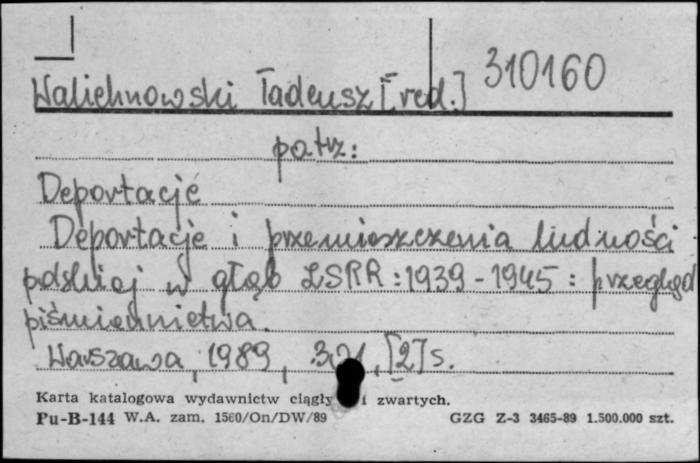 Walichnowski Tadeusz [red.] 310160
patrz:
Deportacje
Deportacje i przemieszczenia ludności
polskiej w głąb ZSRR : 1939 - 1945 : przegląd
piśmiennictwa.
Warszawa, 1989, [2] s.
Karta katalogowa wydawnictw ciągły i zwartych.
Pu-B-144 W.A. zam. 1560/On/DW/89 GZG Z-3 3465-89 1.500.000 szt.